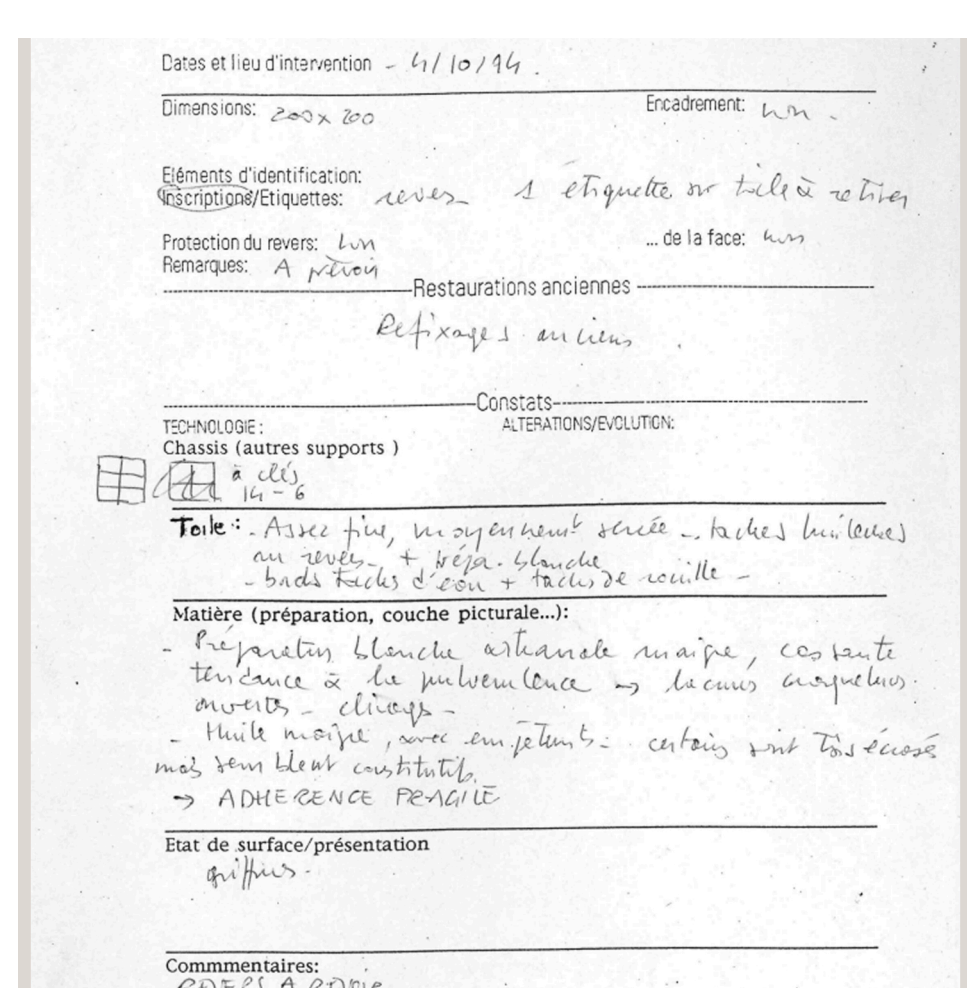 Dates et lieu d'intervention - 4/10/94.
Dimensions: 200 x 200 Encadrement: non.
Eléments d'identification:
Inscriptions/Etiquettes: revers 1 étiquette sur toile à retirer
Protection du revers: non ... de la face: non
Remarques: A prévoir
Restaurations anciennes
Refixages anciens.
Constats
TECHNOLOGIE: ALTERATIONS/EVOLUTION:
Chassis (autres supports )
à clés
14 - 6
Toile : - Assez fine, moyennemt serrée - taches huileuses
au revers - + prépa. blanche
- bords taches d'eau + taches de rouille -
Matière (préparation, couche picturale...):
- Préparation blanche artisanale maigre, cassante
tendance à la pulvérulence → lacunes craquelures
ouvertes - clivages -
- Huile maigre, avec empâtemts - certains sont très écrasés
mais semblent constitutifs.
→ ADHERENCE FRAGILE
Etat de surface/présentation
griffures.
Commmentaires: